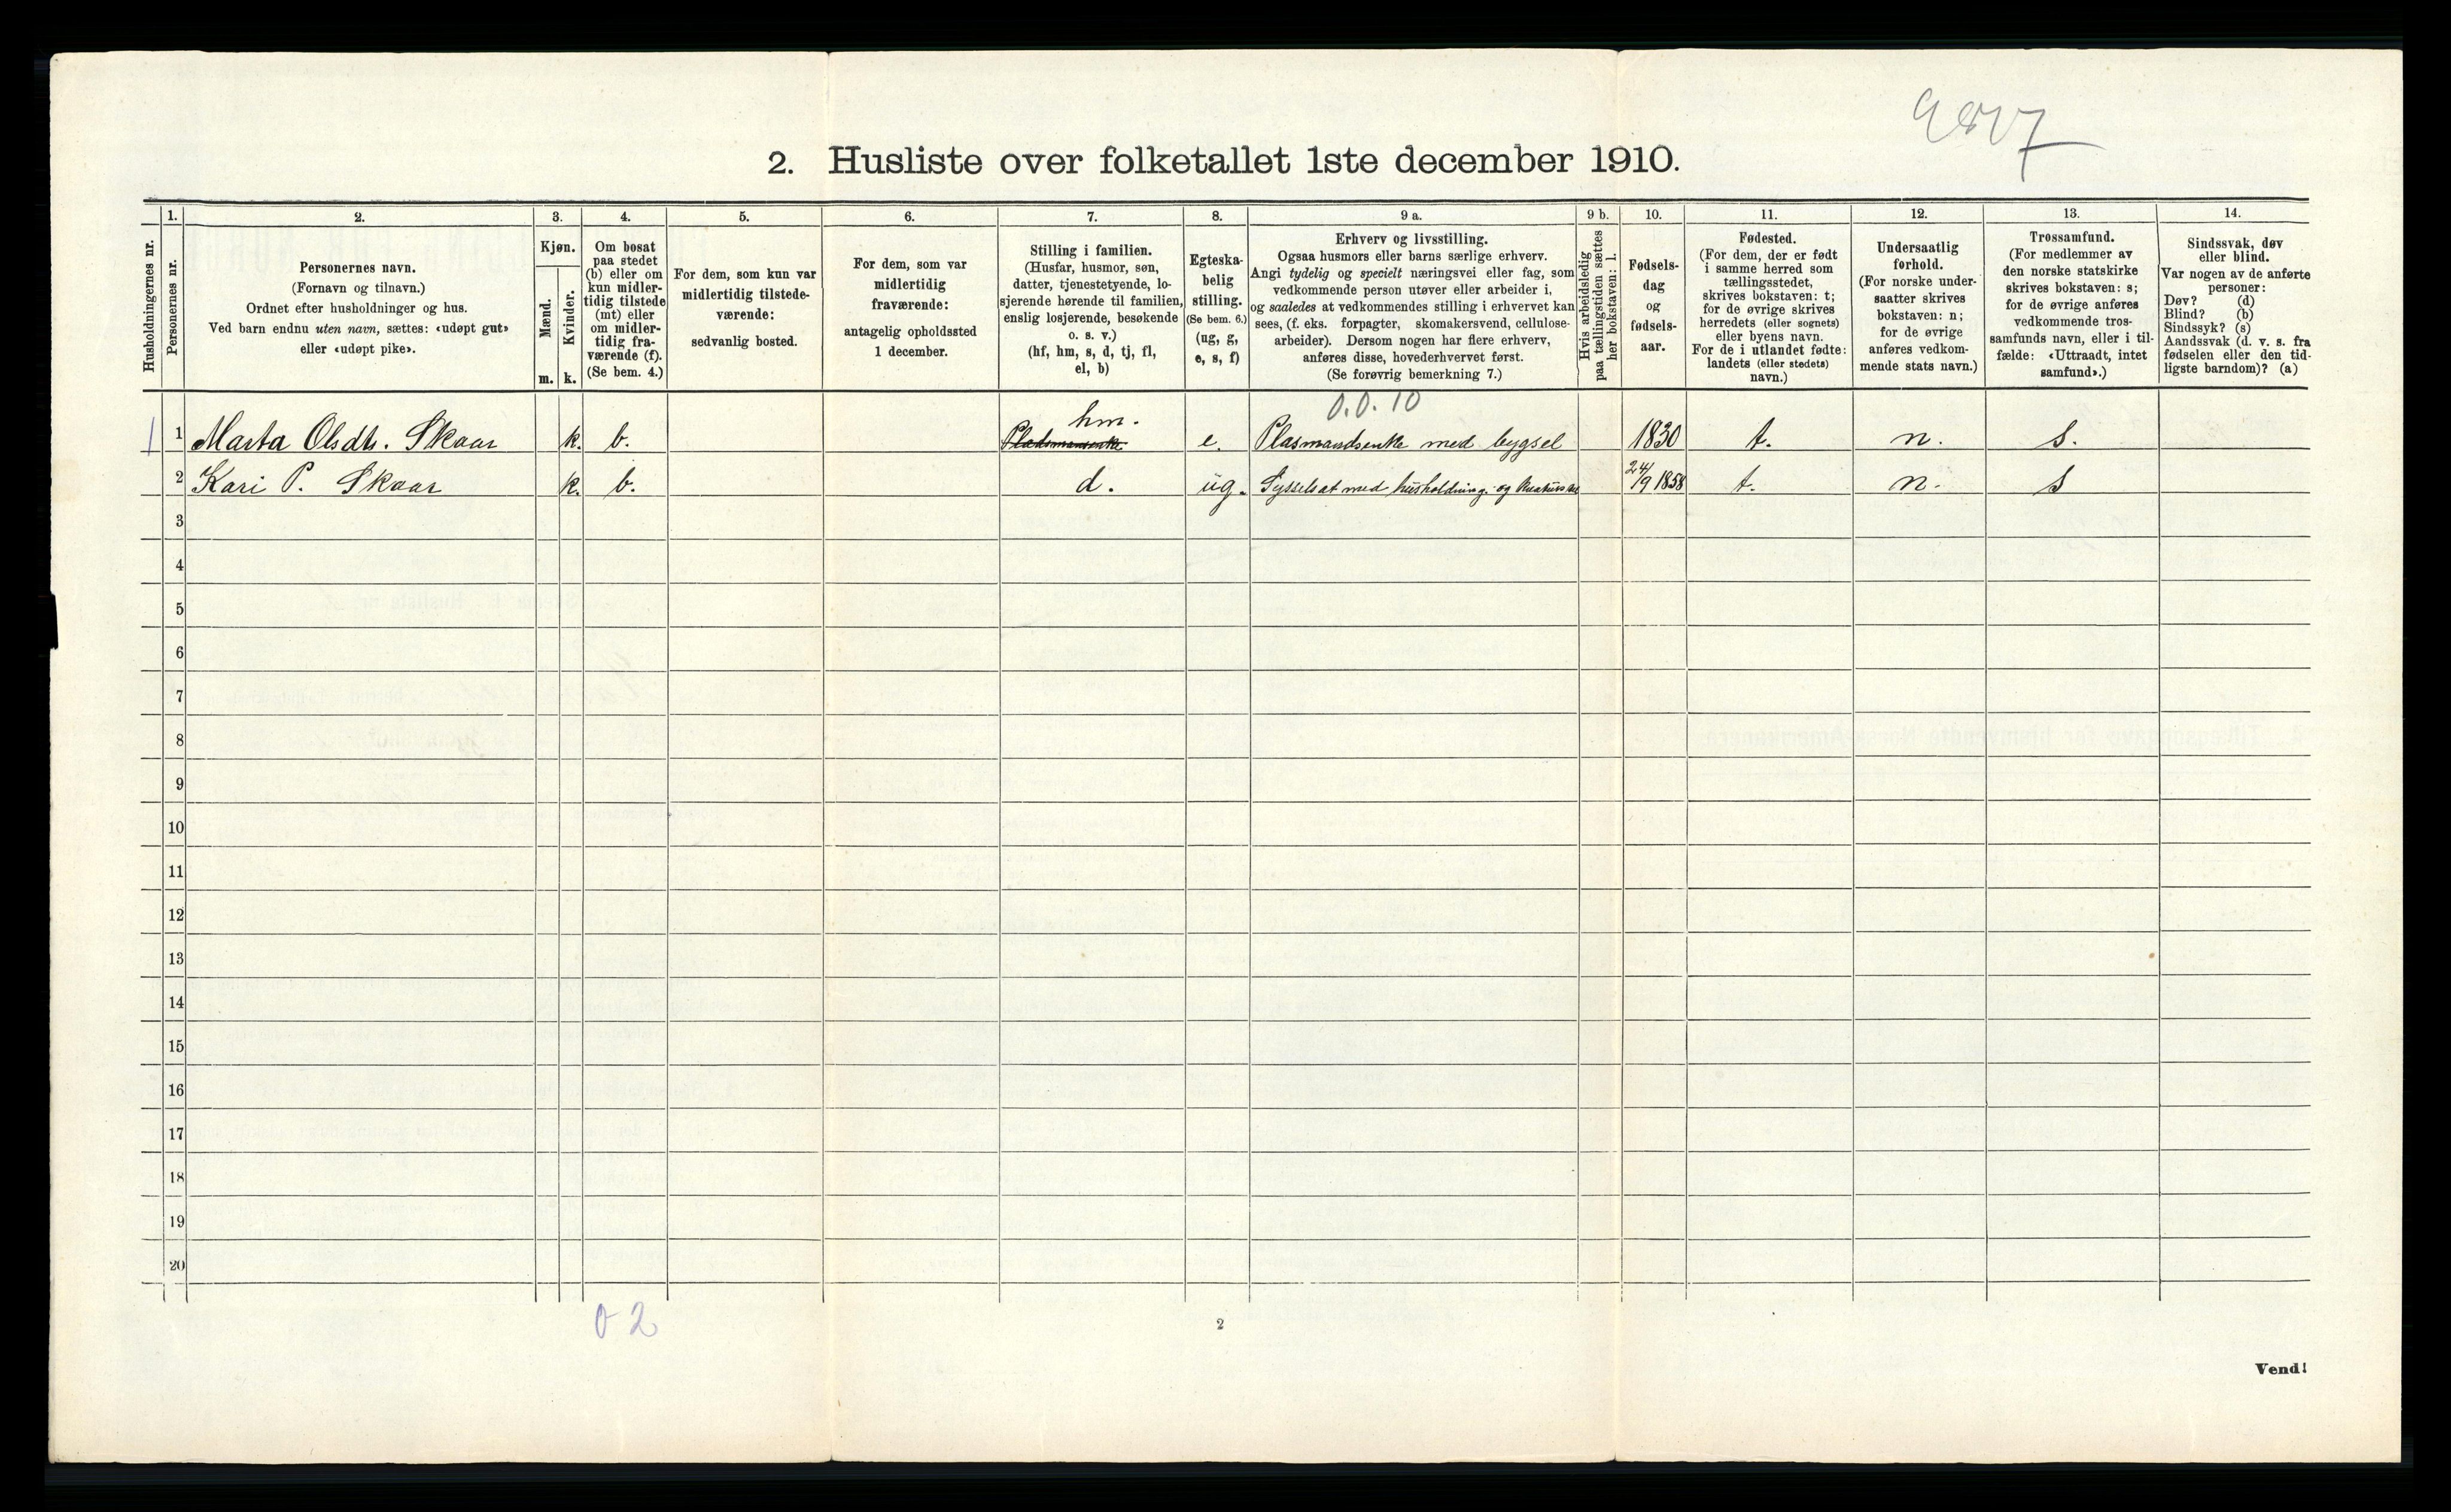 2. Husliste over folketallet 1ste december 1910.
Husholdningernes nr.
1.
Personernes nr.
2.
Personernes navn.
(Fornavn og tilnavn.)
Ordnet efter husholdninger og hus.
Ved barn endnu uten navn, sættes: «udøpt gut»
eller «udøpt pike».
3.
Kjøn.
Mænd.
Kvinder.
m. k.
4.
Om bosat
paa stedet
(b) eller om
kun midler-
tidig tilstede
(mt) eller
om midler-
tidig fra-
værende (f).
(Se bem. 4.)
5.
For dem, som kun var
midlertidig tilstede-
værende:
sedvanlig bosted.
6.
For dem, som var
midlertidig
fraværende:
antagelig opholdssted
1 december.
7.
Stilling i familien.
(Husfar, husmor, søn,
datter, tjenestetyende, lo-
sjerende hørende til familien,
enslig losjerende, besøkende
o. s. v.)
(hf, hm, s, d, tj, fl,
el, b)
8.
Egteska-
belig
stilling.
(Se bem. 6.)
(ug, g,
e, s, f)
9 a.
Erhverv og livsstilling.
Ogsaa husmors eller barns særlige erhverv.
Angi tydelig og specielt næringsvei eller fag, som
vedkommende person utøver eller arbeider i,
og saaledes at vedkommendes stilling i erhvervet kan
sees, (f. eks. forpagter, skomakersvend, cellulose-
arbeider). Dersom nogen har flere erhverv,
anføres disse, hovederhvervet først.
(Se forøvrig bemerkning 7.)
9 b.
Hvis arbeidsledig
paa tællingstiden sættes
her bokstaven: l.
10.
Fødsels-
dag
og
fødsels-
aar.
11.
Fødested.
(For dem, der er født
i samme herred som
tællingsstedet,
skrives bokstaven: t;
for de øvrige skrives
herredets (eller sognets)
eller byens navn.
For de i utlandet fødte:
landets (eller stedets)
navn.)
12.
Undersaatlig
forhold.
(For norske under-
saatter skrives
bokstaven: n;
for de øvrige
anføres vedkom-
mende stats navn.)
13.
Trossamfund.
(For medlemmer av
den norske statskirke
skrives bokstaven: s;
for de øvrige anføres
vedkommende tros-
samfunds navn, eller i til-
fælde: «Uttraadt, intet
samfund».)
14.
Sindssvak, døv
eller blind.
Var nogen av de anførte
personer:
Døv? (d)
Blind? (b)
Sindssyk? (s)
Aandssvak (d. v. s. fra
fødselen eller den tid-
ligste barndom)? (a)
hm. 0.0.10
1 1 Marta Olsdtr. Skaar k. b. Pladsmansenke e. Plasmandsenke med bygsel 1830 t. n. s.
2 Kari P. Skaar k. b. d. ug. Sysselsat med husholdning og 24/9 1858 t. n. s
3
4
5
6
7
8
9
10
11
12
13
14
15
16
17
18
19
20
0 2
2
Vend!